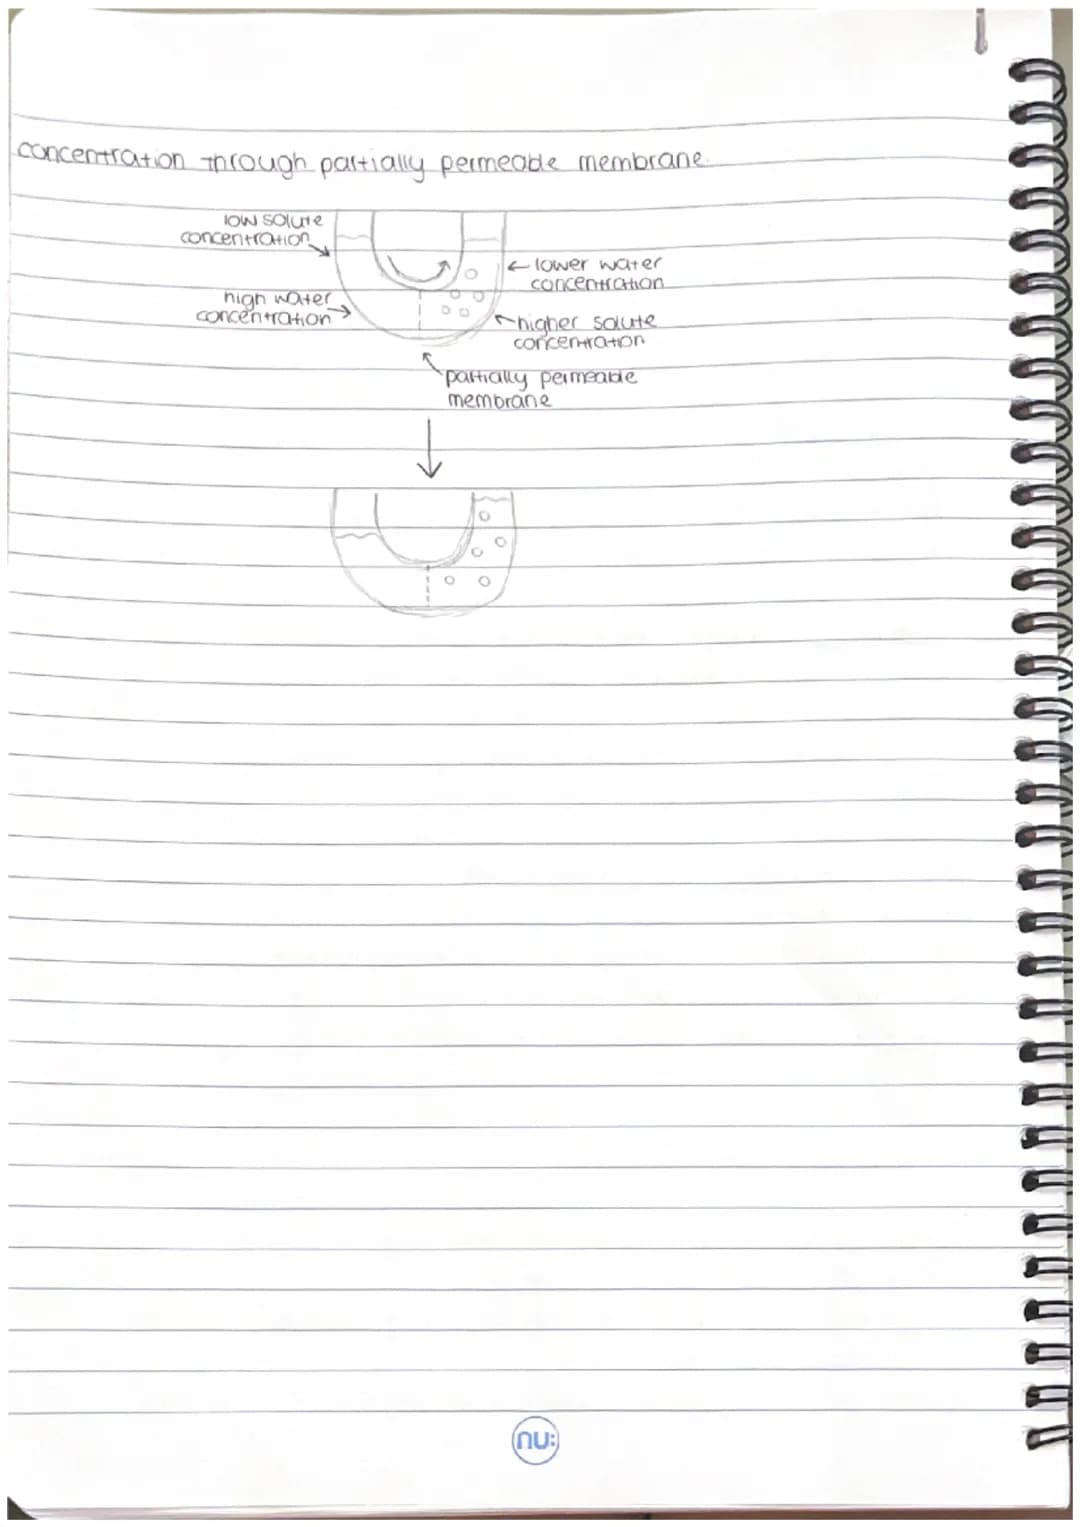 concentration through partially permeable membrane.
low solute
concentration
lower water
concentration
high water
concentration
higher solute
concentration
partially permeable
membrane
nu: